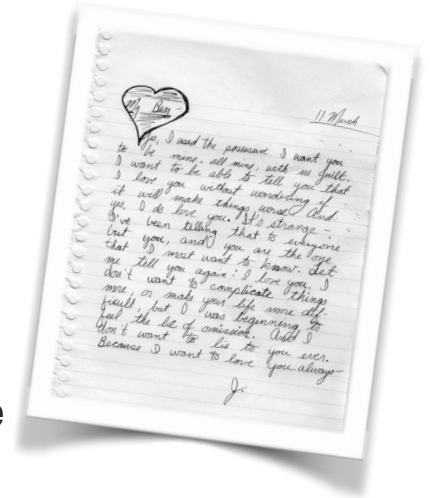 My Ben
11 March
Yes, I used the possessive I want you
to be mine, all mine, with no guilt.
I want to be able to tell you that
I love you without wondering if
it will make things worse. And
yes, I do love you. It's strange -
I've been telling that to everyone
but you, and you are the one
that I most want to know. Let
me tell you again: I love you. I
don't want to complicate things
more, or make your life more dif-
ficult, but I was beginning to
feel the lie of omission. And I
don't want to lie to you ever.
Because I want to love you always-
J.
e